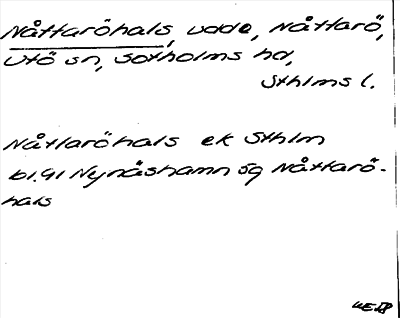 Nåttaröhals, udde, Nåttarö,
Utö sn, Sotholms hd,
Sthlms l.
Nåttaröhals ek Sthlm
bl. 91 Nynäshamn 5g Nåttarö-
hals